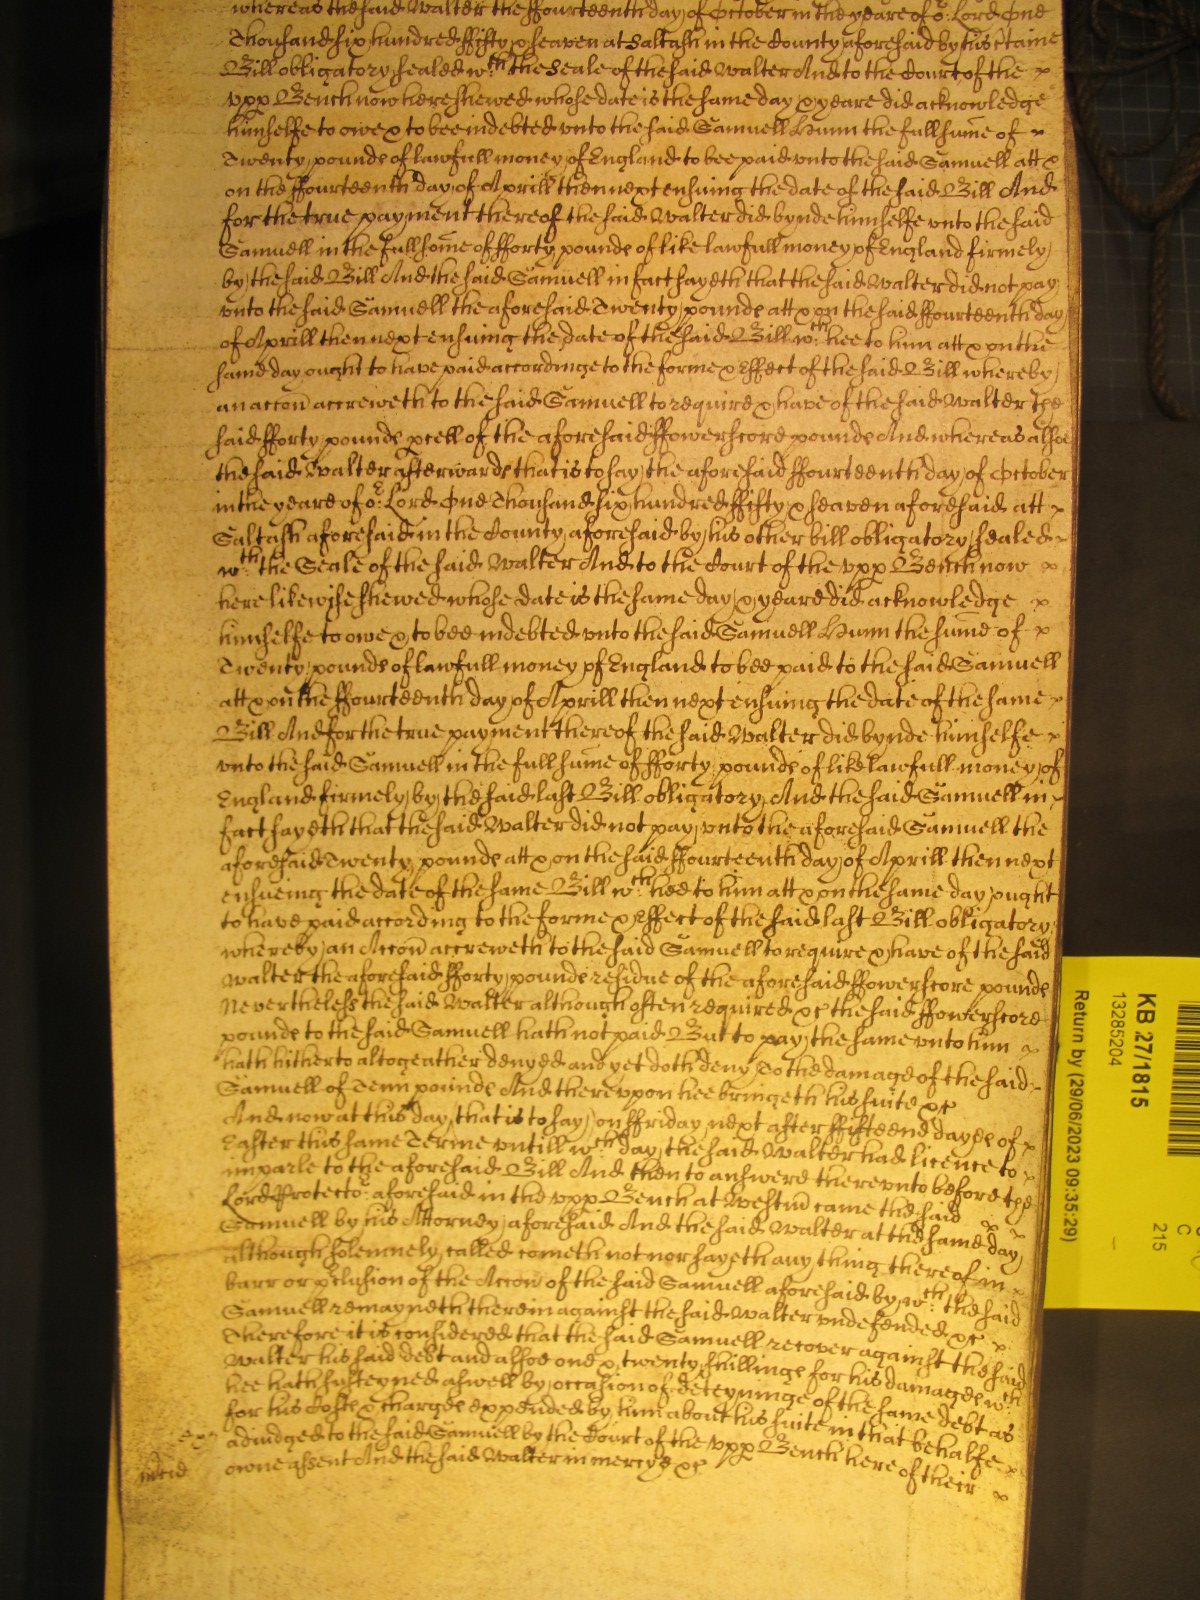 whereas the said Walter the ffourteenth day of October in the yeare of or: Lord One
Thousand six hundred ffifty & seaven at Saltash in the County aforesaid by his Certaine
Bill obligatory sealed wth: the Seale of the said Walter And to the Court of the
upp Bench now here shewed whose date is the same day & yeare did acknowledge
himselfe to owe & to bee indebted unto the said Samuell Hunn the full sume of
Twenty pounds of lawfull money of England to bee paid unto the said Samuell att &
on the ffourteenth day of Aprill then next ensuing the date of the said Bill And
for the true payment thereof the said Walter did bynde himselfe unto the said
Samuell in the full some of fforty pounds of like lawfull money of England firmely
by the said Bill And the said Samuell in fact sayeth that the said Walter did not pay
unto the said Samuell the aforesaid Twenty pounds att & on the said ffourteenth day
of Aprill then next ensuing the date of the said Bill wch: hee to him att & on the
same day ought to have paid accordinge to the forme & Effect of the said Bill whereby
an accon accreweth to the said Samuell to require & have of the said Walter the
said fforty pounds pcell of the aforesaid ffowerscore pounds And whereas alsoe
the said Walter afterwards that is to say the aforesaid ffourteenth day of October
in the yeare of or: Lord One Thousand six hundred ffifty & seaven aforesaid att
Saltash aforesaid in the County aforesaid by his other bill obligatory sealed
wth: the Seale of the said Walter And to the Court of the upp Bench now
here likewise shewed whose date is the same day & yeare did acknowledge
himselfe to owe & to bee indebted unto the said Samuell Hunn the sume of
Twenty pounds of lawfull money of England to bee paid to the said Samuell
att & on the ffourteenth day of Aprill then next ensuing the date of the same
Bill And for the true payment thereof the said Walter did bynde himselfe
unto the said Samuell in the full sume of fforty pounds of like lawfull money of
England firmely by the said last Bill obligatory And the said Samuell in
fact sayeth that the said Walter did not pay unto the aforesaid Samuell the
aforesaid Twenty pounds att & on the said ffourteenth day of Aprill then next
ensueing the date of the same Bill wch hee to him att & on the same day ought
to have paid according to the forme & Effect of the said last Bill obligatory
whereby an Accon accreweth to the said Samuell to require & have of the said
Walter the aforesaid fforty pounds residue of the aforesaid ffowerscore pounds
Nevertheless the said Walter although often required &c the said ffowerscore
pounds to the said Samuell hath not paid But to pay the same unto him
hath hitherto altogeather denyed and yet doth deny To the damage of the said
Samuell of Tenn pounds And thereupon hee bringeth his suite &c
And now at this day that is to say on ffriday next after ffifteene dayes of
Easter this same Terme untill wch day the said Walter had licence to
imparle to the aforesaid Bill And then to answere thereunto before the
Lord Protector: aforesaid in the upp Bench at Westm came the said
Samuell by his Attorney aforesaid And the said Walter at the same day
although solemnely called cometh not nor sayeth any thing thereof in
barr or pclusion of the Accon of the said Samuell aforesaid by wch: the said
Samuell remayneth therein against the said Walter undefended &c
Therefore it is considered that the said Samuell recover against the said
Walter his said debt and alsoe one & twenty shillings for his damages wch
hee hath susteyned aswell by occasion of deteyninge of the same debt as
for his Costs & charges expended by him about his suite in that behalfe
adiudged to the said Samuell by the Court of the upp Bench here of their
owne assent And the said Walter in mercy &c
KB 27/1815
13285204
Return by (29/06/2023 09:35:29)
215